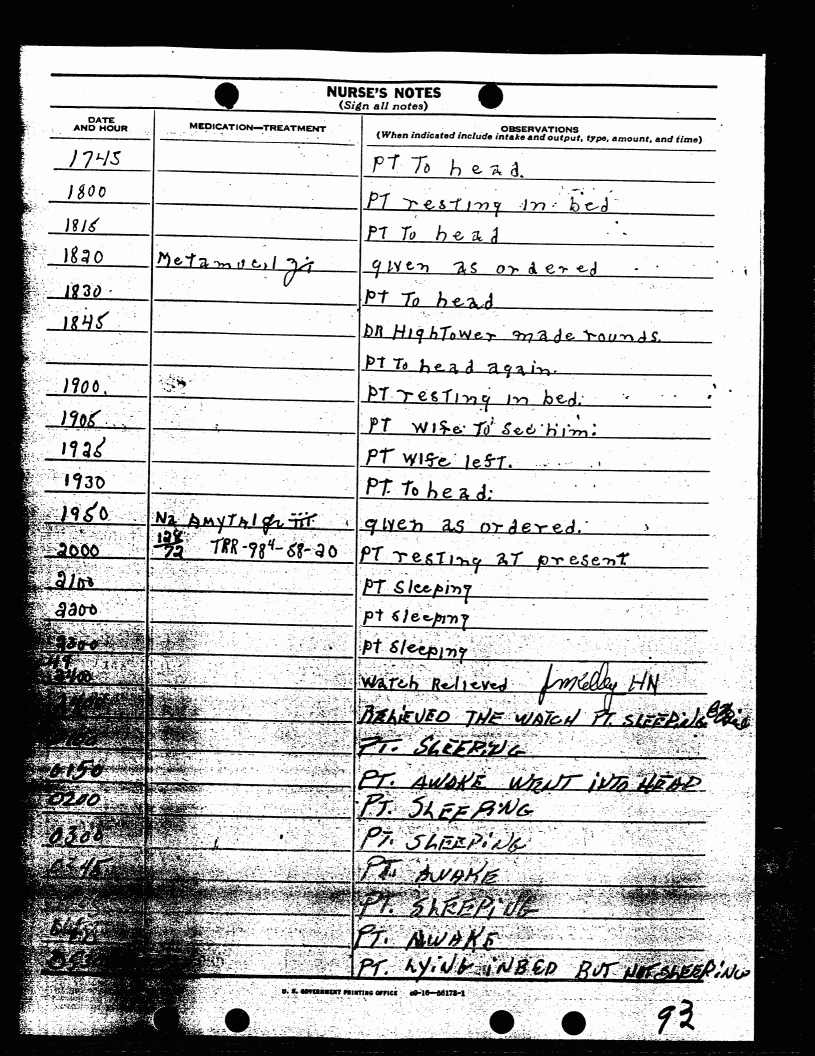 NURSE'S NOTES
(Sign all notes)
DATE AND HOUR MEDICATION—TREATMENT OBSERVATIONS
(When indicated include intake and output, type, amount, and time)
1745 PT To head.
1800 PT resting in bed
1815 PT To head
1820 Metamucil given as ordered
1830 PT To head
1845 DR HighTower made rounds.
PT To head again.
1900 PT resting in bed.
1905 PT wife To see him.
1925 PT wife left.
1930 PT. To head.
1950 Na AmyTAl gr III given as ordered.
2000 128/72 TPR-98⁴-68-20 PT resting AT present
2100 PT Sleeping
2200 pt sleeping
2300 pt sleeping
2400 Watch Relieved HN
RELIEVED THE WATCH PT. SLEEPING
PT. SLEEPING
0150 PT. AWAKE WENT INTO HEAD
0200 PT. SLEEPING
0300 PT. SLEEPING
0345 PT. AWAKE
PT. SLEEPING
PT. AWAKE
PT. LYING IN BED BUT NOT SLEEPING
U. S. GOVERNMENT PRINTING OFFICE
93